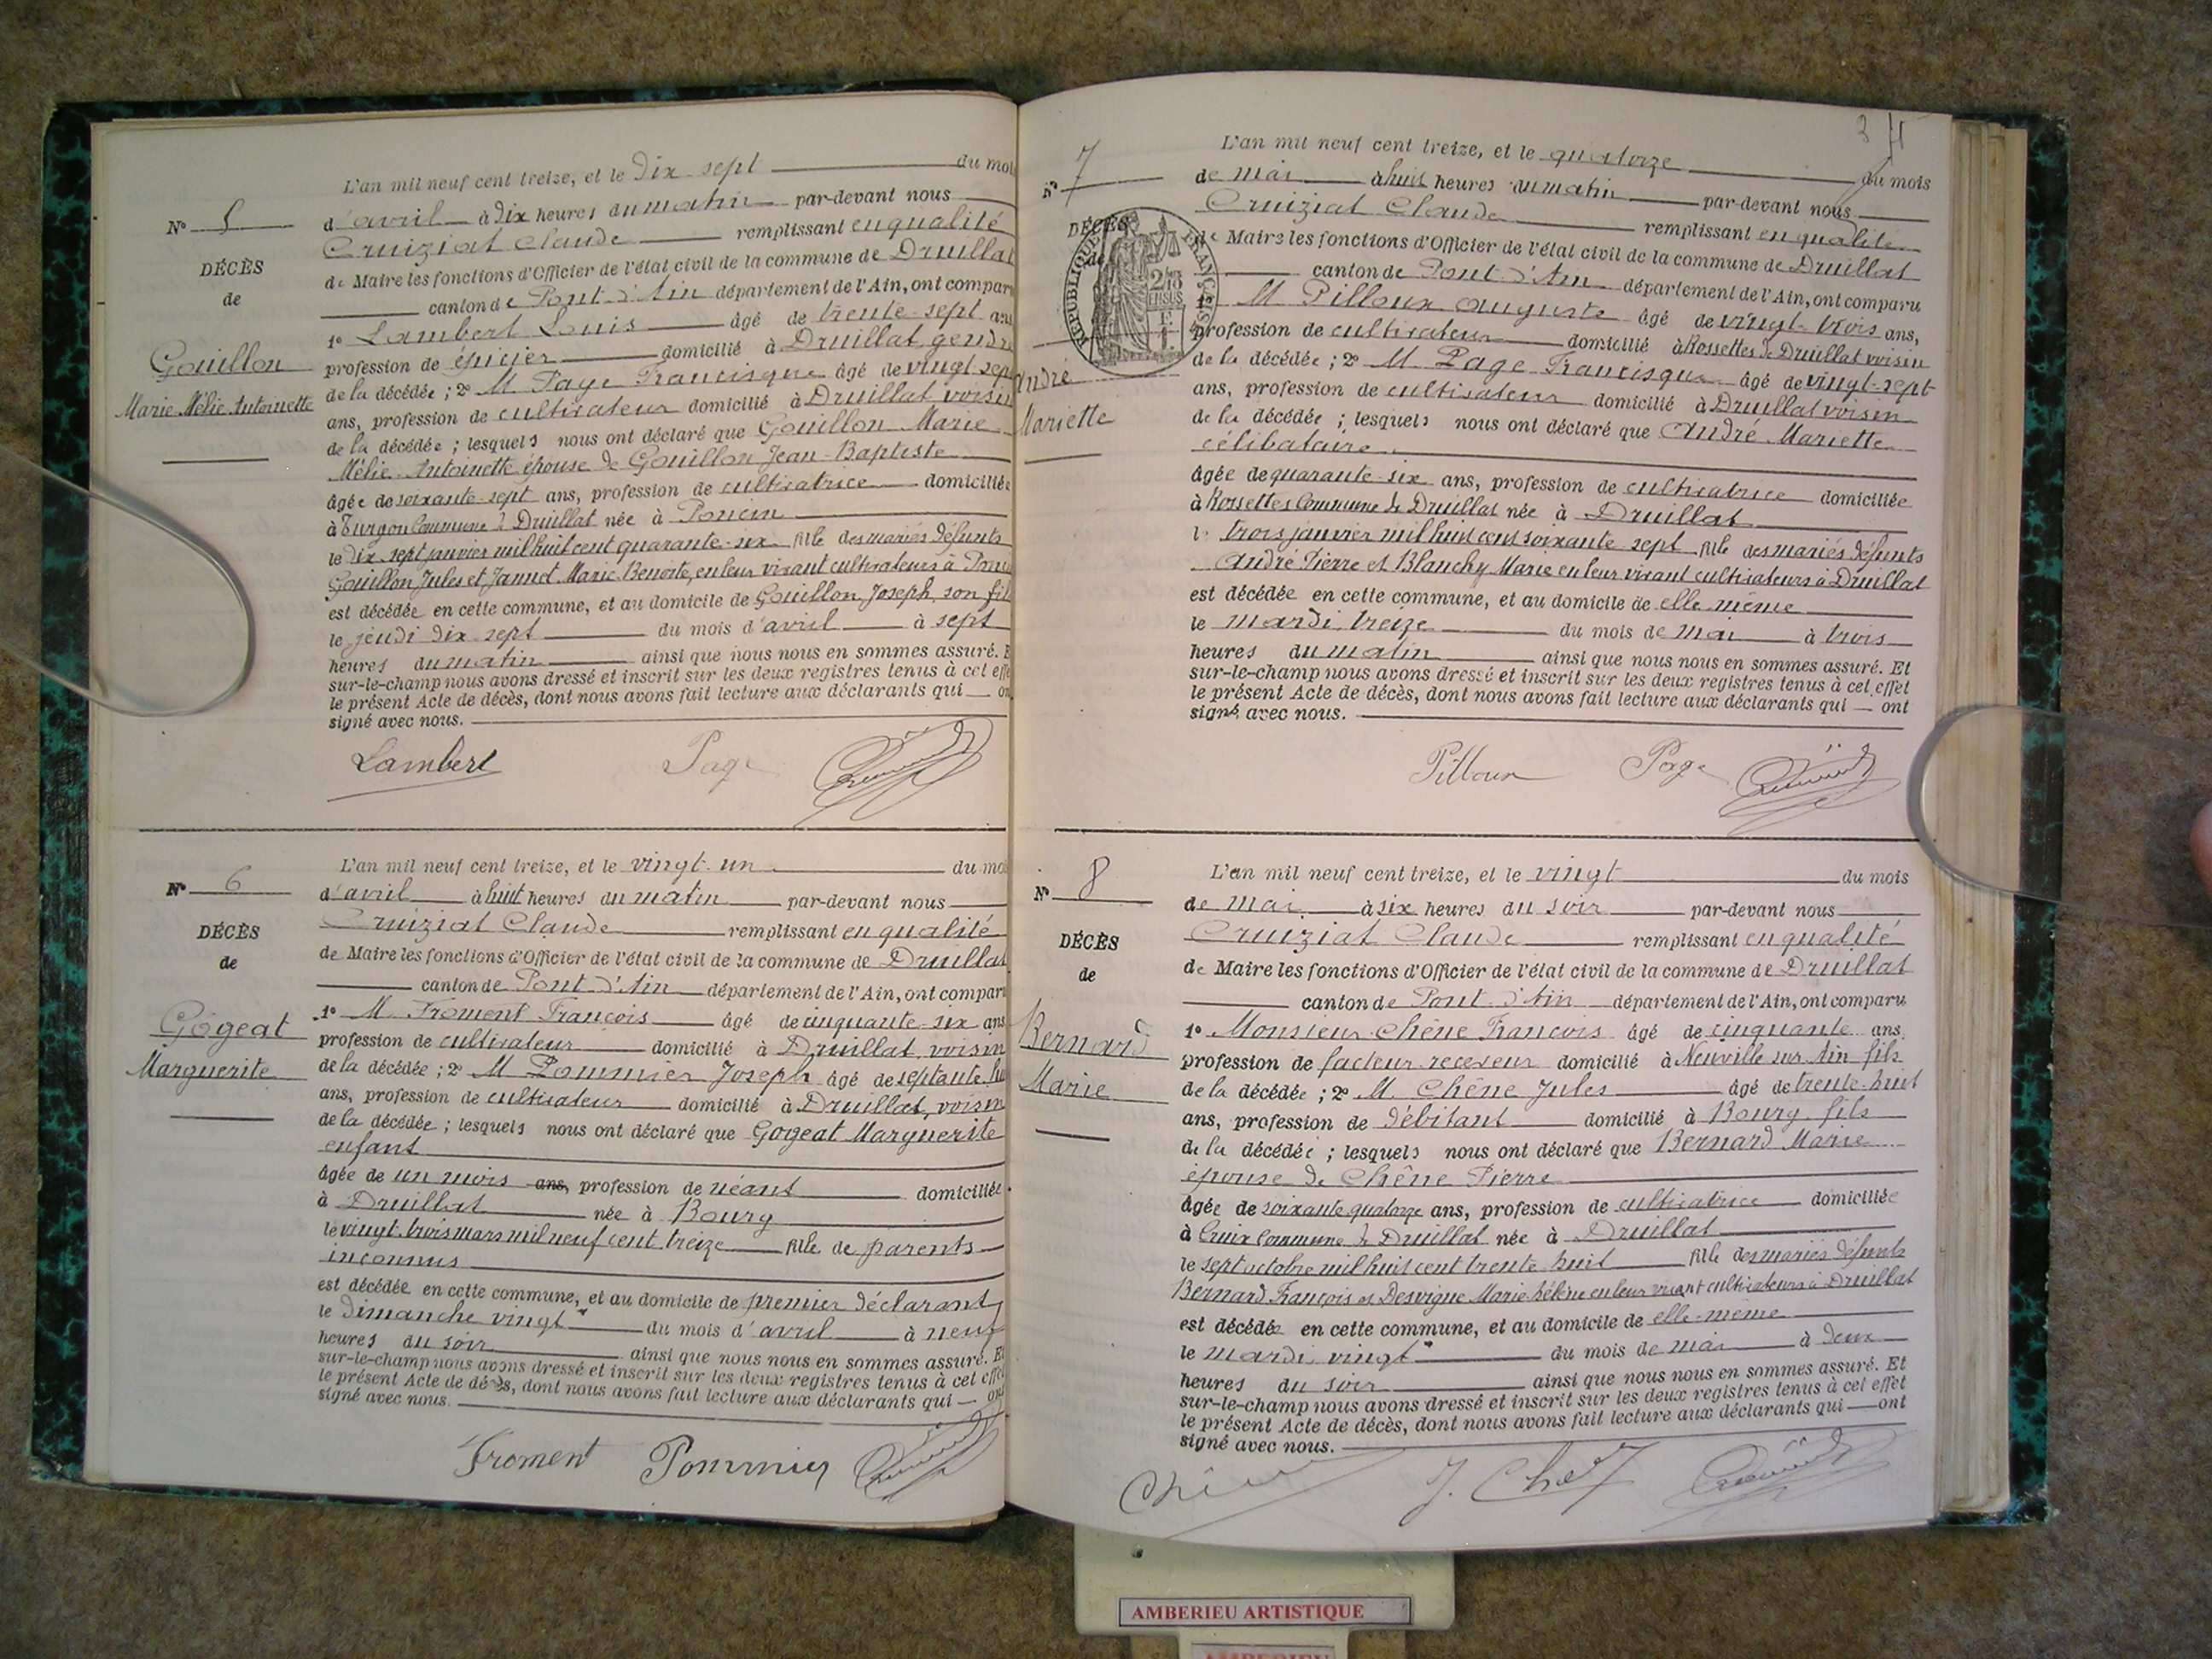 L'an mil neuf cent treize, et le dix sept du moi
d'avril à dix heures du matin par-devant nous
Nº 5
Cruiziat Claude remplissant en qualité
DÉCÈS
de Maire les fonctions d'Officier de l'état civil de la commune de Druillat
de
canton de Pont d'Ain département de l'Ain, ont compar
1º Lambert Louis âgé de trente-sept ans
Gouillon
profession de épicier domicilié à Druillat, gendr
Marie Mélie Antoinette
de la décédée ; 2º M Page Francisque âgé de vingt sep
ans, profession de cultivateur domicilié à Druillat voisin
de la décédée ; lesquels nous ont déclaré que Gouillon Marie
Mélie-Antoinette épouse de Gouillon Jean-Baptiste
âgée de soixante-sept ans, profession de cultivatrice domiciliée
à Turgon Commune de Druillat née à Poncin
le dix-sept janvier mil huit cent quarante-six fille des mariés défunts
Gouillon Jules et Jannet Marie Benoite, en leur vivant cultivateurs à
est décédée en cette commune, et au domicile de Gouillon Joseph, son fil
le jeudi dix sept du mois d'avril à sept
heures du matin ainsi que nous nous en sommes assuré. E
sur-le-champ nous avons dressé et inscrit sur les deux registres tenus à cet effe
le présent Acte de décès, dont nous avons fait lecture aux déclarants qui on
signé avec nous.
Lambert Page
L'an mil neuf cent treize, et le vingt-un du mo
Nº 6
d'avril à huit heures du matin par-devant nous
DÉCÈS
Cruiziat Claude remplissant en qualité
de
de Maire les fonctions d'Officier de l'état civil de la commune de Druillat
canton de Pont d'Ain département de l'Ain, ont compar
Gogeat
1º M. Froment François âgé de cinquante-six ans
Marguerite
profession de cultivateur domicilié à Druillat, voisin
de la décédée ; 2º M Pommier Joseph âgé de septante
ans, profession de cultivateur domicilié à Druillat, voisin
de la décédée ; lesquels nous ont déclaré que Gogeat Marguerite
enfant
âgée de un mois ans, profession de néant domiciliée
à Druillat née à Bourg
le vingt-trois mars mil neuf cent treize fille de parents
inconnus
est décédée en cette commune, et au domicile de premier déclarant
le dimanche vingt du mois d'avril à neuf
heures du soir ainsi que nous nous en sommes assuré. Et
sur-le-champ nous avons dressé et inscrit sur les deux registres tenus à cet effet
le présent Acte de décès, dont nous avons fait lecture aux déclarants qui ont
signé avec nous.
Froment Pommier
3
L'an mil neuf cent treize, et le quatorze du mois
Nº 7
de mai à huit heures du matin par-devant nous
Cruiziat Claude remplissant en qualité
DÉCÈS
de
RÉPUBLIQUE FRANÇAISE
de Maire les fonctions d'Officier de l'état civil de la commune de Druillat
canton de Pont d'Ain département de l'Ain, ont comparu
1º M Pilloux Auguste âgé de vingt-trois ans,
profession de cultivateur domicilié à Rossettes de Druillat voisin
André
de la décédée ; 2º M. Page Francisque âgé de vingt-sept
Mariette
ans, profession de cultivateur domicilié à Druillat voisin
de la décédée ; lesquels nous ont déclaré que André Mariette
célibataire
âgée de quarante-six ans, profession de cultivatrice domiciliée
à Rossettes Commune de Druillat née à Druillat
le trois janvier mil huit cent soixante-sept fille des mariés défunts
André Pierre et Blanchy Marie en leur vivant cultivateurs à Druillat
est décédée en cette commune, et au domicile de elle-même
le mardi, treize du mois de mai à trois
heures du matin ainsi que nous nous en sommes assuré. Et
sur-le-champ nous avons dressé et inscrit sur les deux registres tenus à cet effet
le présent Acte de décès, dont nous avons fait lecture aux déclarants qui ont
signé avec nous.
Pilloux Page
L'an mil neuf cent treize, et le vingt du mois
Nº 8
de mai à six heures du soir par-devant nous
DÉCÈS
Cruiziat Claude remplissant en qualité
de
de Maire les fonctions d'Officier de l'état civil de la commune de Druillat
canton de Pont d'Ain département de l'Ain, ont comparu
Bernard
1º Monsieur Chêne François âgé de cinquante ans
Marie
profession de facteur receveur domicilié à Neuville sur Ain fils
de la décédée ; 2º M. Chêne Jules âgé de trente-huit
ans, profession de débitant domicilié à Bourg fils
de la décédée ; lesquels nous ont déclaré que Bernard Marie
épouse de Chêne Pierre
âgée de soixante quatorze ans, profession de cultivatrice domiciliée
à Cruix Commune de Druillat née à Druillat
le sept octobre mil huit cent trente huit fille des mariés défunts
Bernard François et Desvigne Marie-hélène en leur vivant cultivateurs à Druillat
est décédée en cette commune, et au domicile de elle-même
le mardi vingt du mois de mai à deux
heures du soir ainsi que nous nous en sommes assuré. Et
sur-le-champ nous avons dressé et inscrit sur les deux registres tenus à cet effet
le présent Acte de décès, dont nous avons fait lecture aux déclarants qui ont
signé avec nous.
AMBERIEU ARTISTIQUE
AMBERIEU